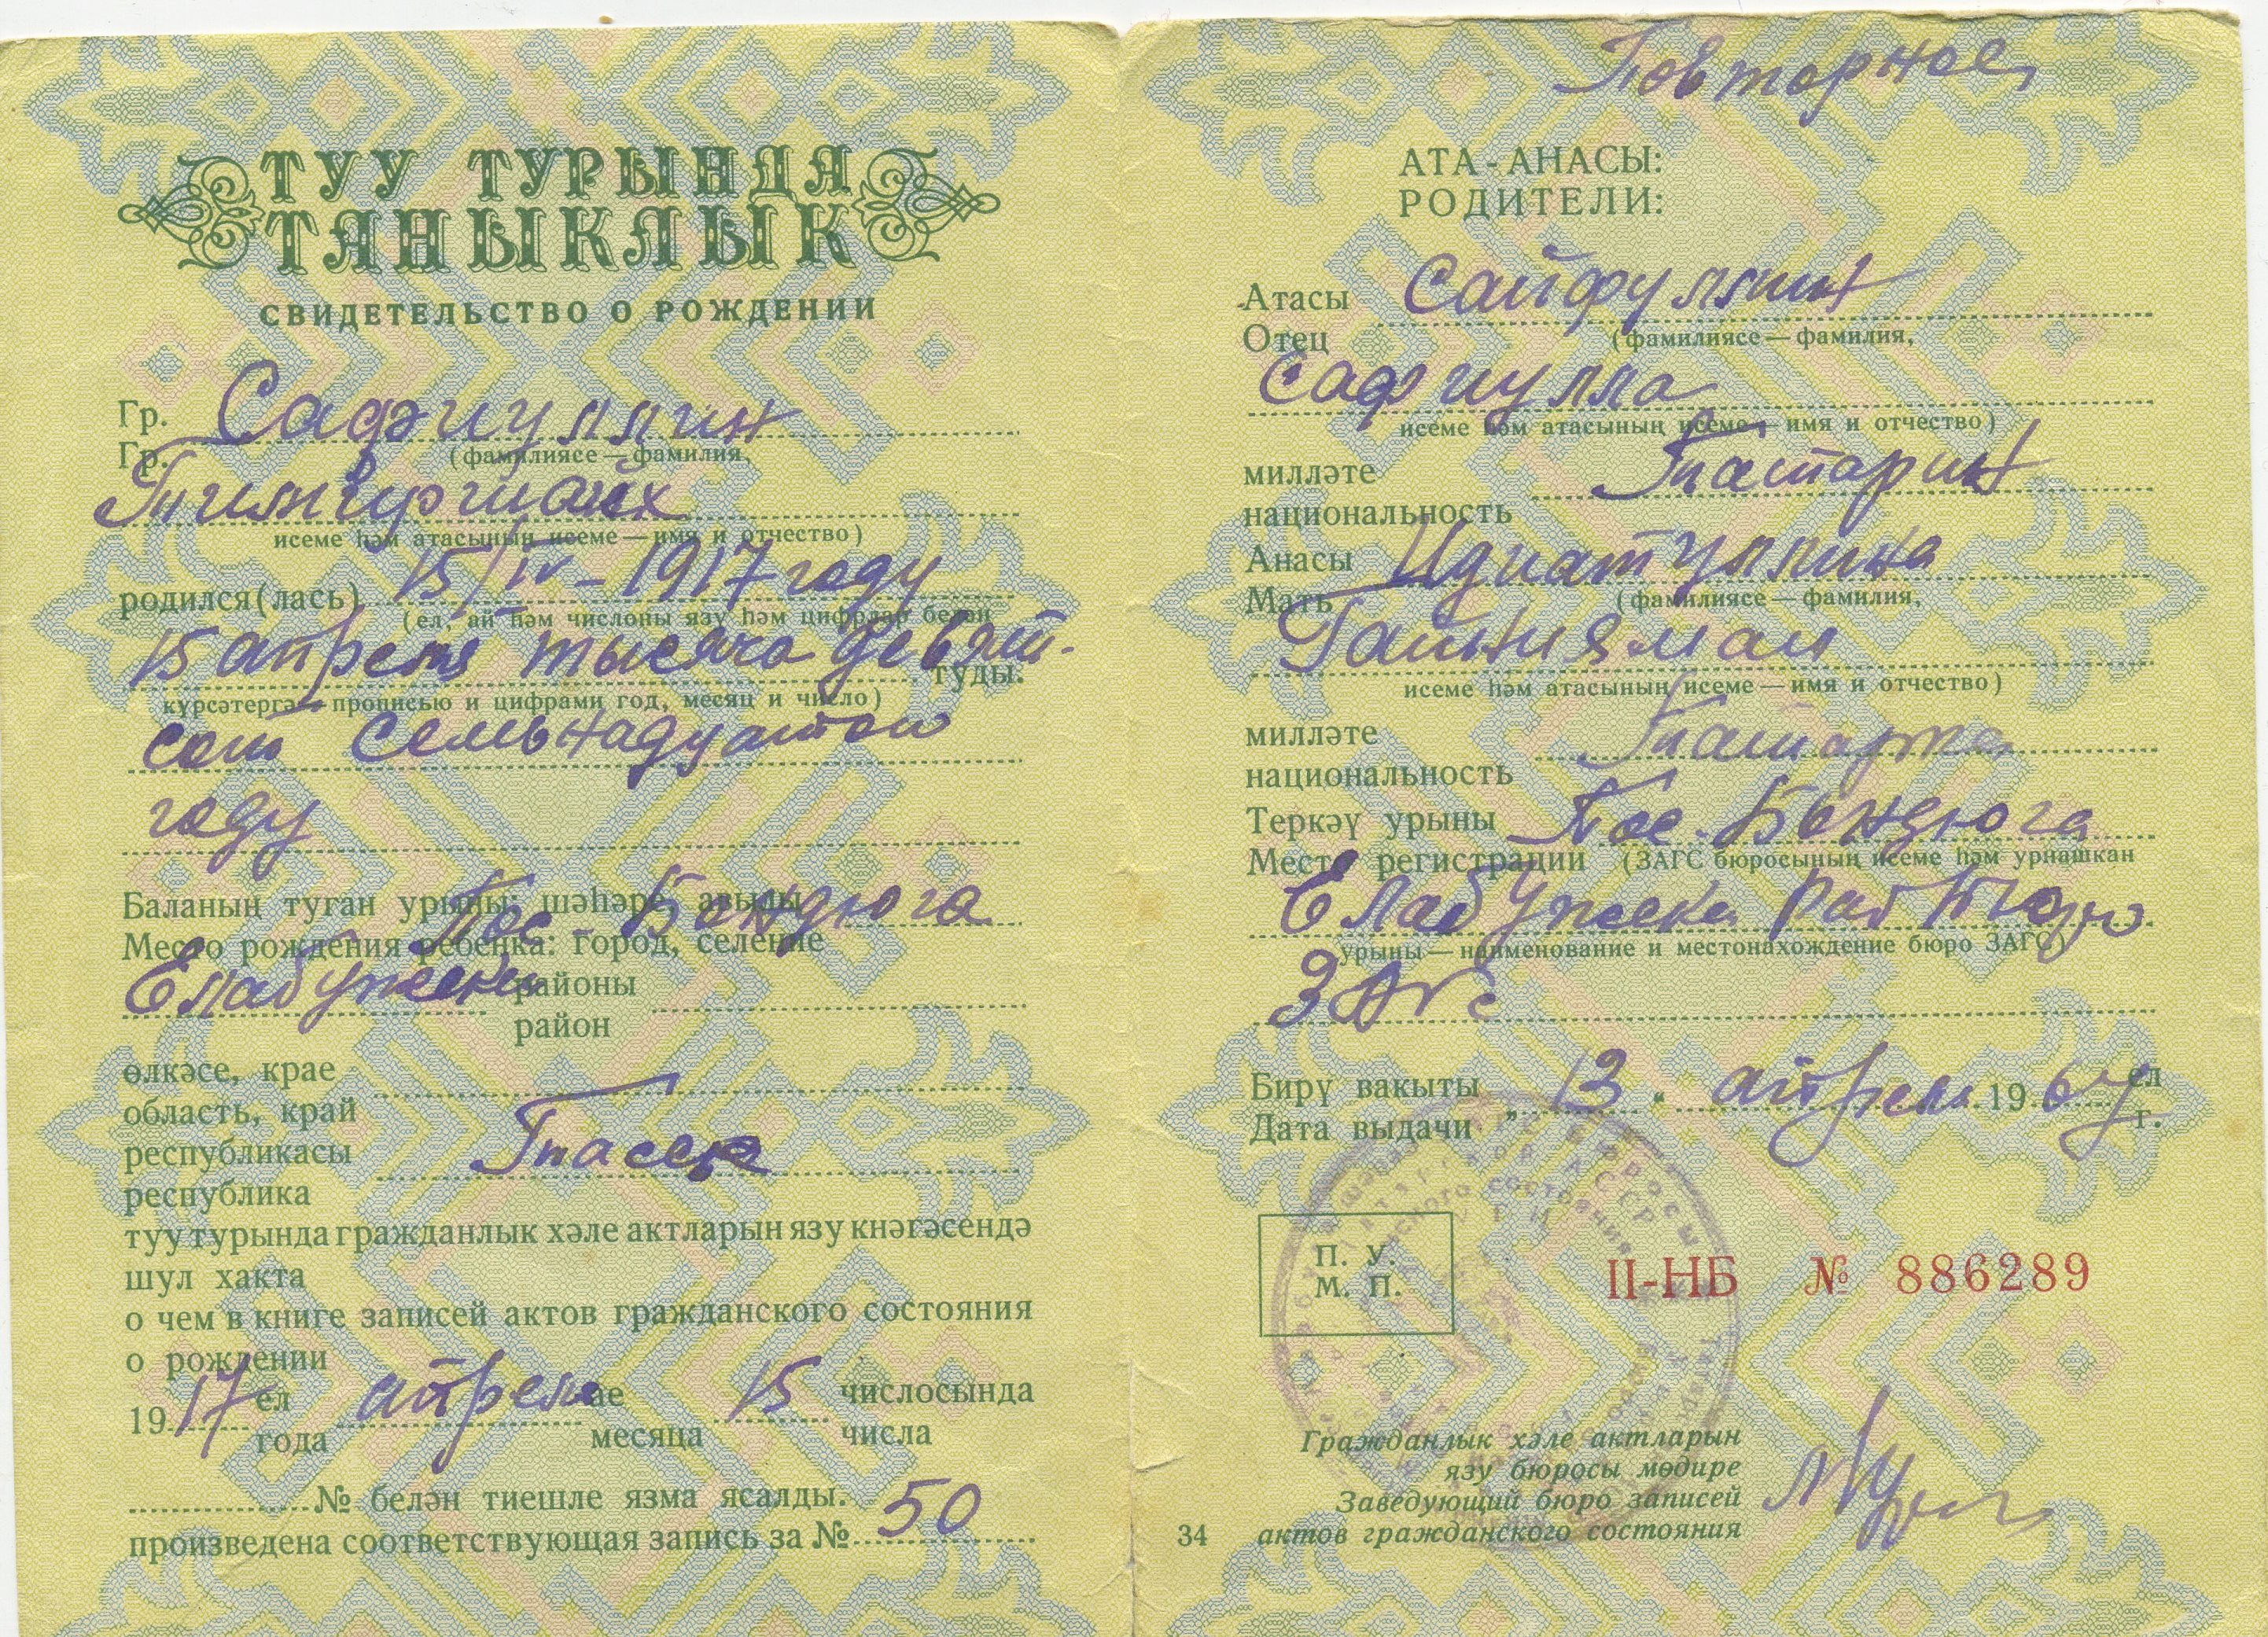 ТУУ ТУРЫНДА
ТАНЫКЛЫК
СВИДЕТЕЛЬСТВО О РОЖДЕНИИ
Гр. Сафиуллин
Гр. (фамилиясе — фамилия,
исеме һәм атасының исеме — имя и отчество)
родился(лась) 15/IV – 1917 году
(ел, ай һәм числоны язу һәм цифрлар белән
15 апреля тысяча девят- туды.
күрсәтергә — прописью и цифрами год, месяц и число)
сот семьнадцатом
году
Баланың туган урыны: шәһәре, авылы Пос. Бондюга
Место рождения ребенка: город, селение
Елабужский районы
район
өлкәсе, крае
область, край
республикасы Тасср
республика
туу турында гражданлык хәле актларын язу кнәгәсендә
шул хакта
о чем в книге записей актов гражданского состояния
о рождении
1917 ел апреля ае 15 числосында
года месяца числа
№ белән тиешле язма ясалды.
произведена соответствующая запись за № 50
Повторное
АТА-АНАСЫ:
РОДИТЕЛИ:
Атасы Сайфуллин
Отец (фамилиясе — фамилия,
Сафиулла
исеме һәм атасының исеме — имя и отчество)
милләте Татарин
национальность
Анасы Идиатуллина
Мать (фамилиясе — фамилия,
Гайниямал
исеме һәм атасының исеме — имя и отчество)
милләте Татарка
национальность
Теркәү урыны Пос. Бондюга
Место регистрации (ЗАГС бюросының исеме һәм урнашкан
Елабужска
урыны — наименование и местонахождение бюро ЗАГС)
ЗАГС
Бирү вакыты „13“ апреля 1967 ел
Дата выдачи г.
П. У.
М. П.
II-НБ № 886289
Гражданлык хәле актларын
язу бюросы мөдире
Заведующий бюро записей
34 актов гражданского состояния